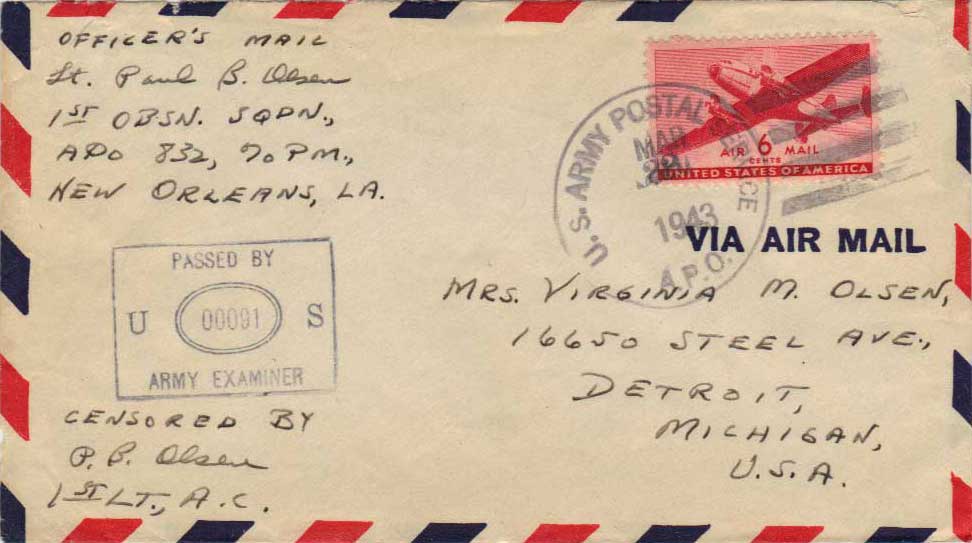 OFFICER'S MAIL
Lt. Paul B. Olsen
1ST OBSN. SQDN.,
APO 832, % P.M.,
NEW ORLEANS, LA.
U.S. ARMY POSTAL SERVICE
MAR
1943
A.P.O.
AIR 6 MAIL
CENTS
UNITED STATES OF AMERICA
VIA AIR MAIL
PASSED BY
U 00091 S
ARMY EXAMINER
MRS. VIRGINIA M. OLSEN,
16650 STEEL AVE.,
DETROIT,
MICHIGAN,
U.S.A.
CENSORED BY
P. B. Olsen
1ST LT., A.C.